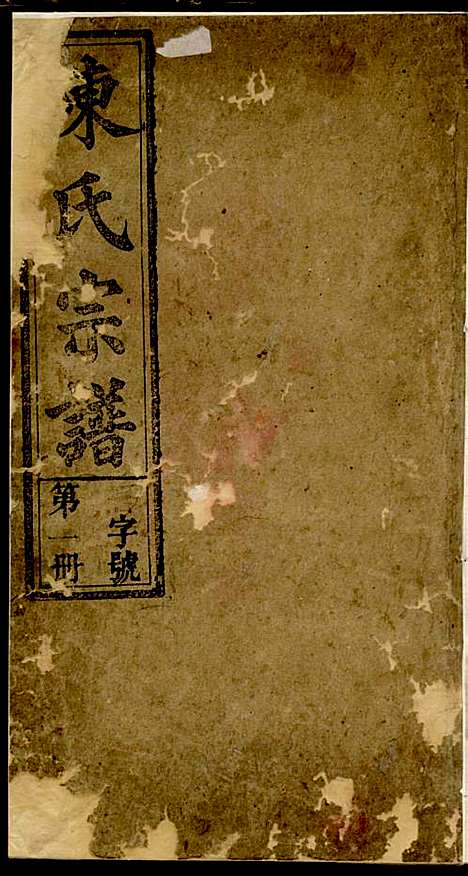 東氏宗譜
字號
第一冊